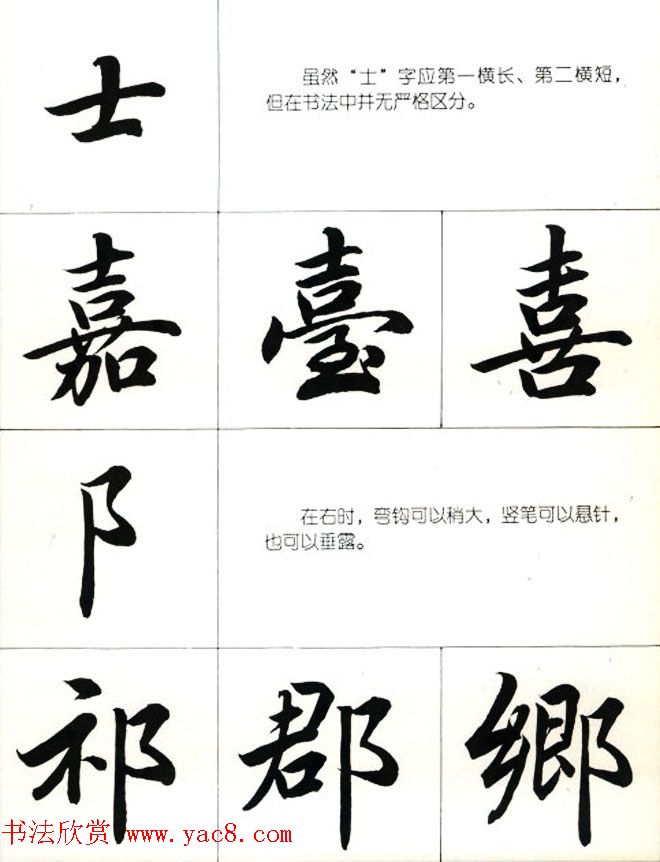 士
虽然“士”字应第一横长、第二横短，
但在书法中并无严格区分。
嘉 臺 喜
阝
在右时，弯钩可以稍大，竖笔可以悬针，
也可以垂露。
祁 郡 鄉
书法欣赏 www.yac8.com